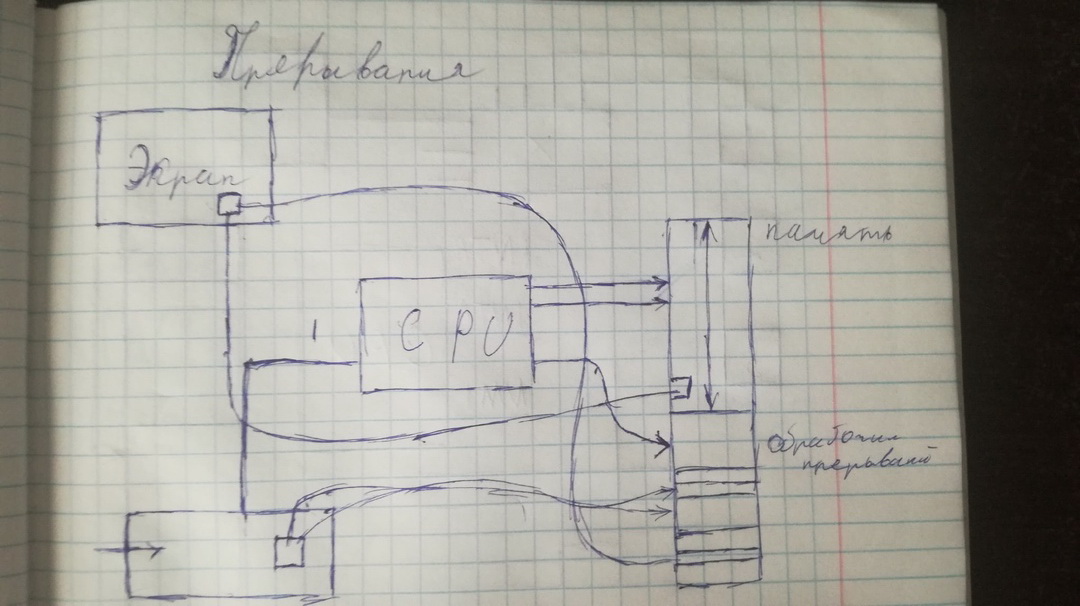 Прерывания
Экран
память
CPU
Обработчик
прерываний